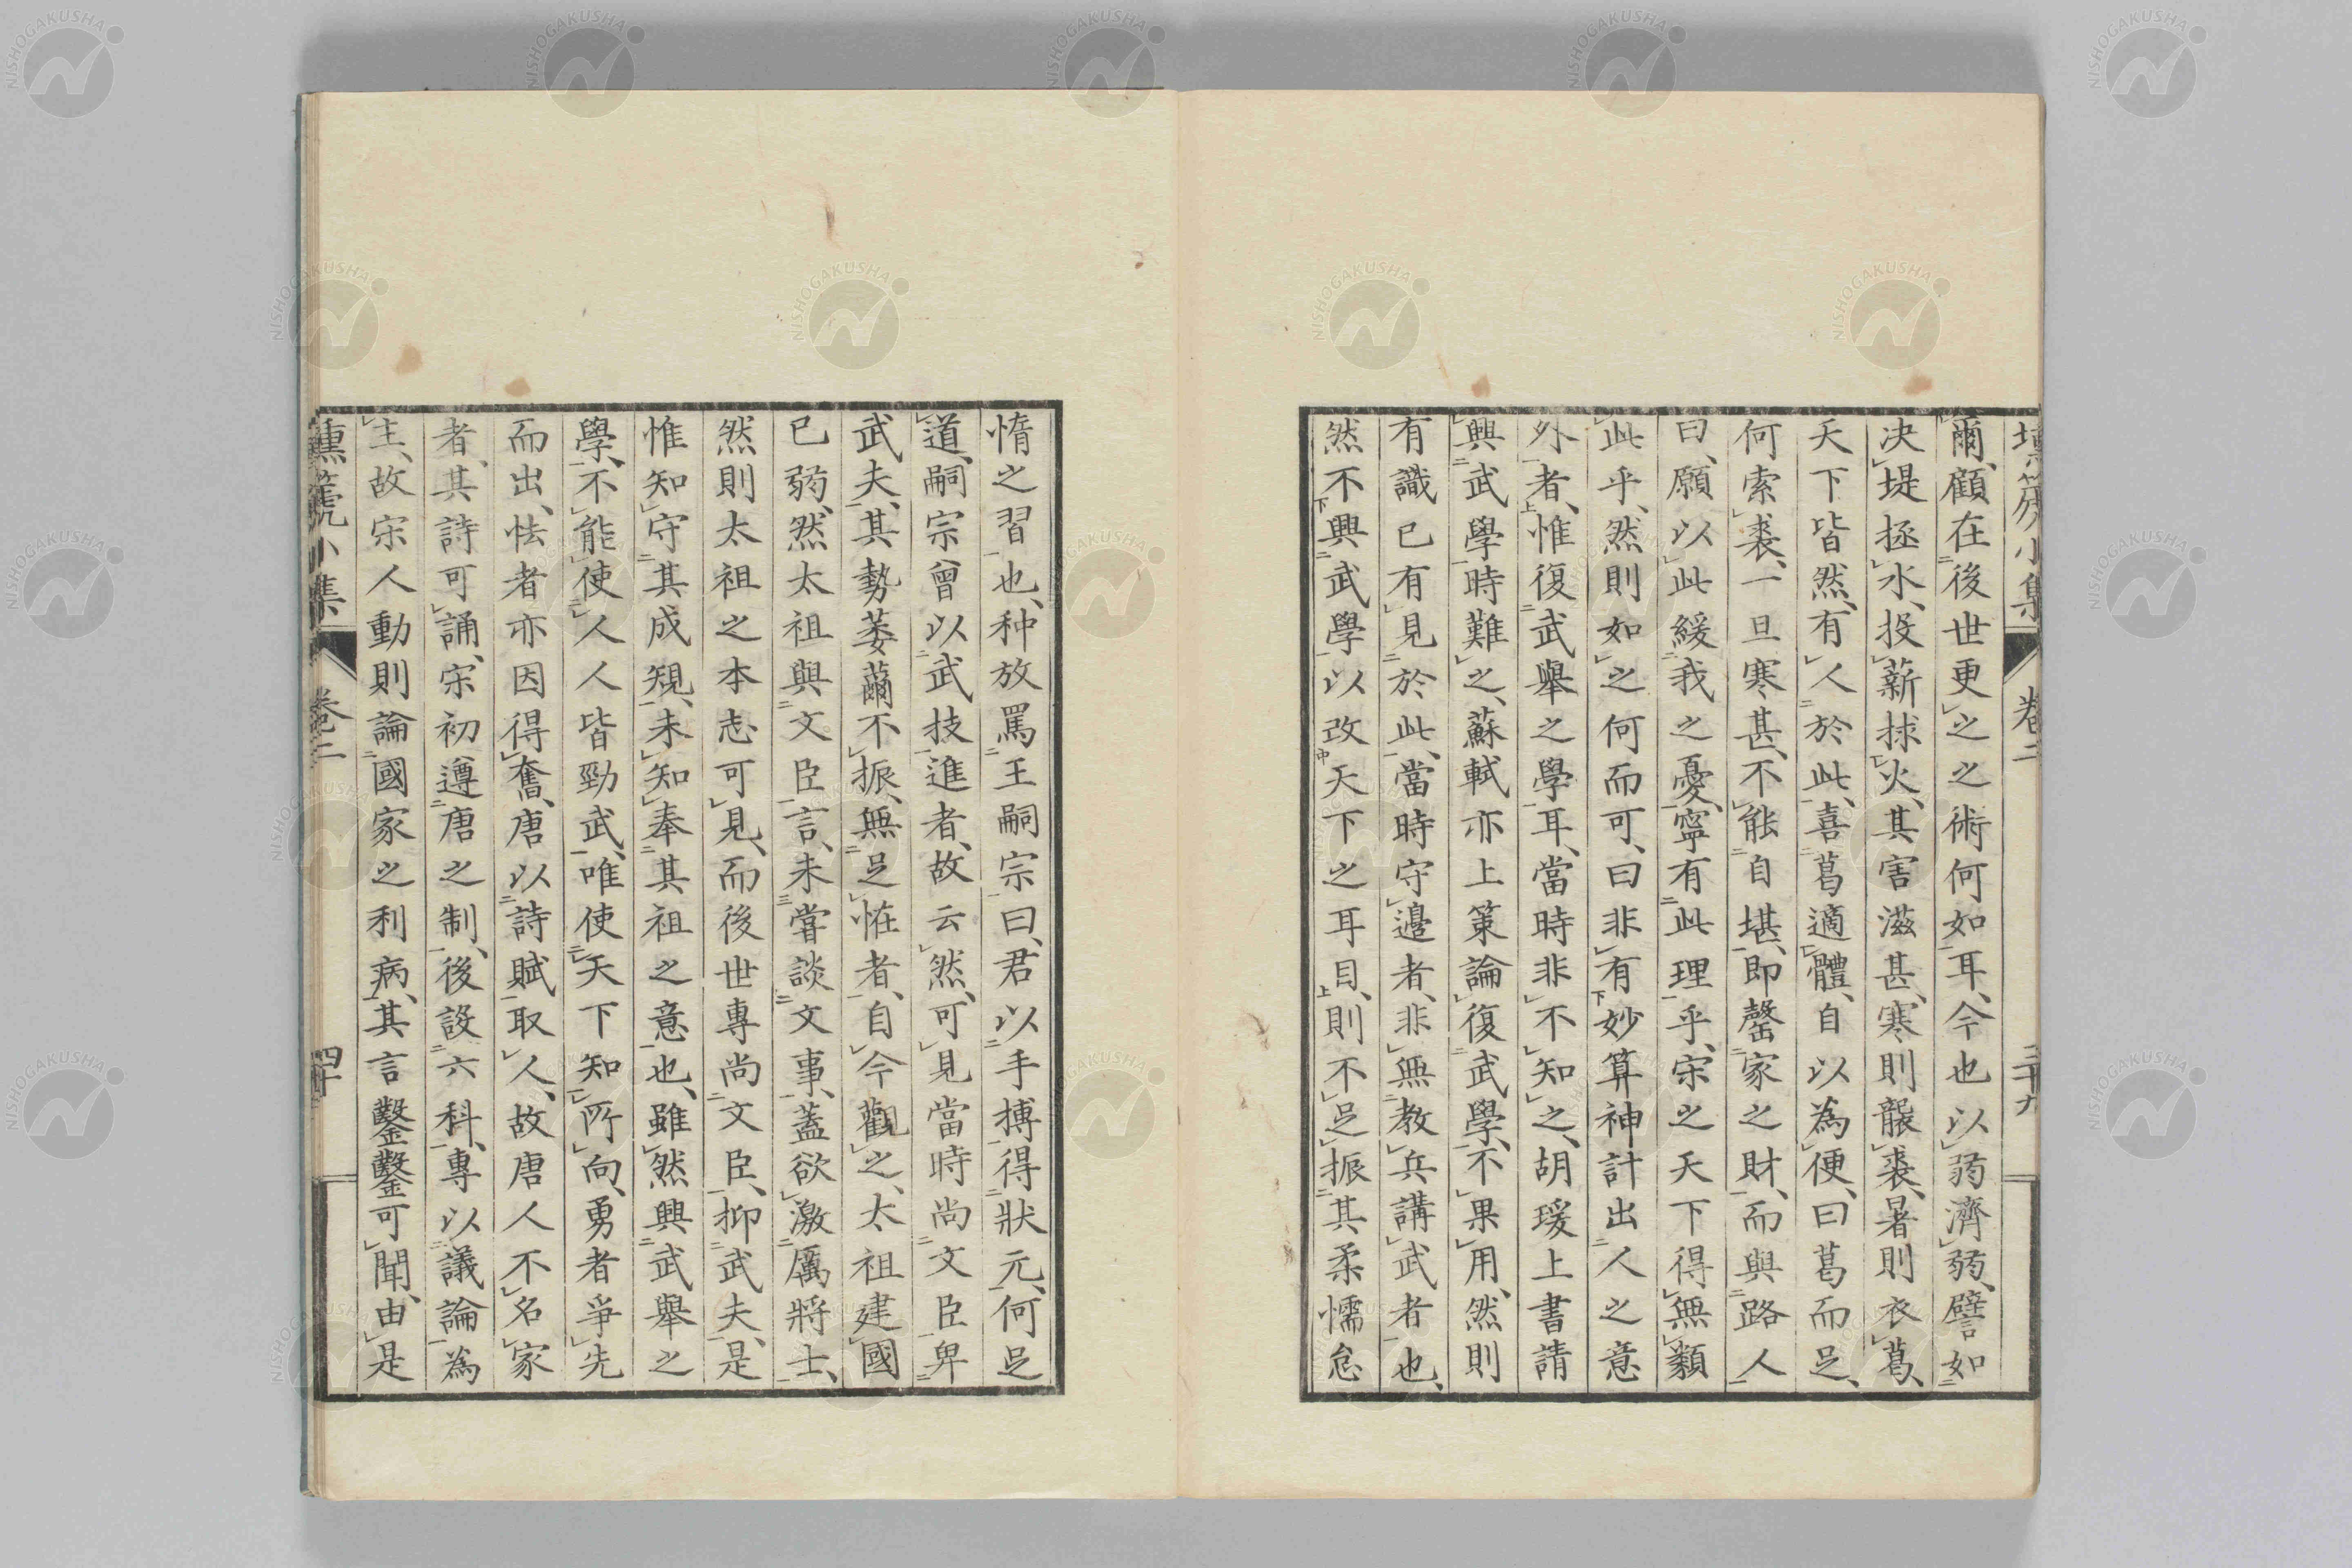 爾、顧在後世更之之術何如耳、今也以弱濟弱、譬如
决堤拯水、投薪捄火、其害滋甚、寒則襲裘、暑則衣葛、
天下皆然、有人於此、喜葛適體、自以為便、曰葛而足、
何索裘、一旦寒甚、不能自堪、即罄家之財、而與路人
曰、願以此緩我之憂、寧有此理乎、宋之天下得無纇
此乎、然則如之何而可、曰非有妙算神計出人之意
外者、惟復武舉之學耳、當時非不知之、胡瑗上書請
興武學、時難之、蘇軾亦上策論復武學、不果用、然則
有識已有見於此、當時守邉者、非無教兵講武者也、
然不興武學以改天下之耳目、則不足振其柔懦怠
卷二
三十九
惰之習也、种放罵王嗣宗曰、君以手搏得狀元、何足
道、嗣宗曾以武技進者、故云然、可見當時尚文臣卑
武夫、其勢萎薾不振、無足怪者、自今觀之、太祖建國
已弱、然太祖與文臣言、未甞談文事、蓋欲激厲將士、
然則太祖之本志可見、而後世專尚文臣、抑武夫、是
惟知守其成規、未知奉其祖之意也、雖然興武舉之
學、不能使人人皆勁武、唯使天下知所向、勇者爭先
而出、怯者亦因得奮、唐以詩賦取人、故唐人不名家
者、其詩可誦、宋初遵唐之制、後設六科、專以議論為
主、故宋人動則論國家之利病、其言鑿鑿可聞、由是
壎篪小集
卷二
四十
NISHOGAKUSHA